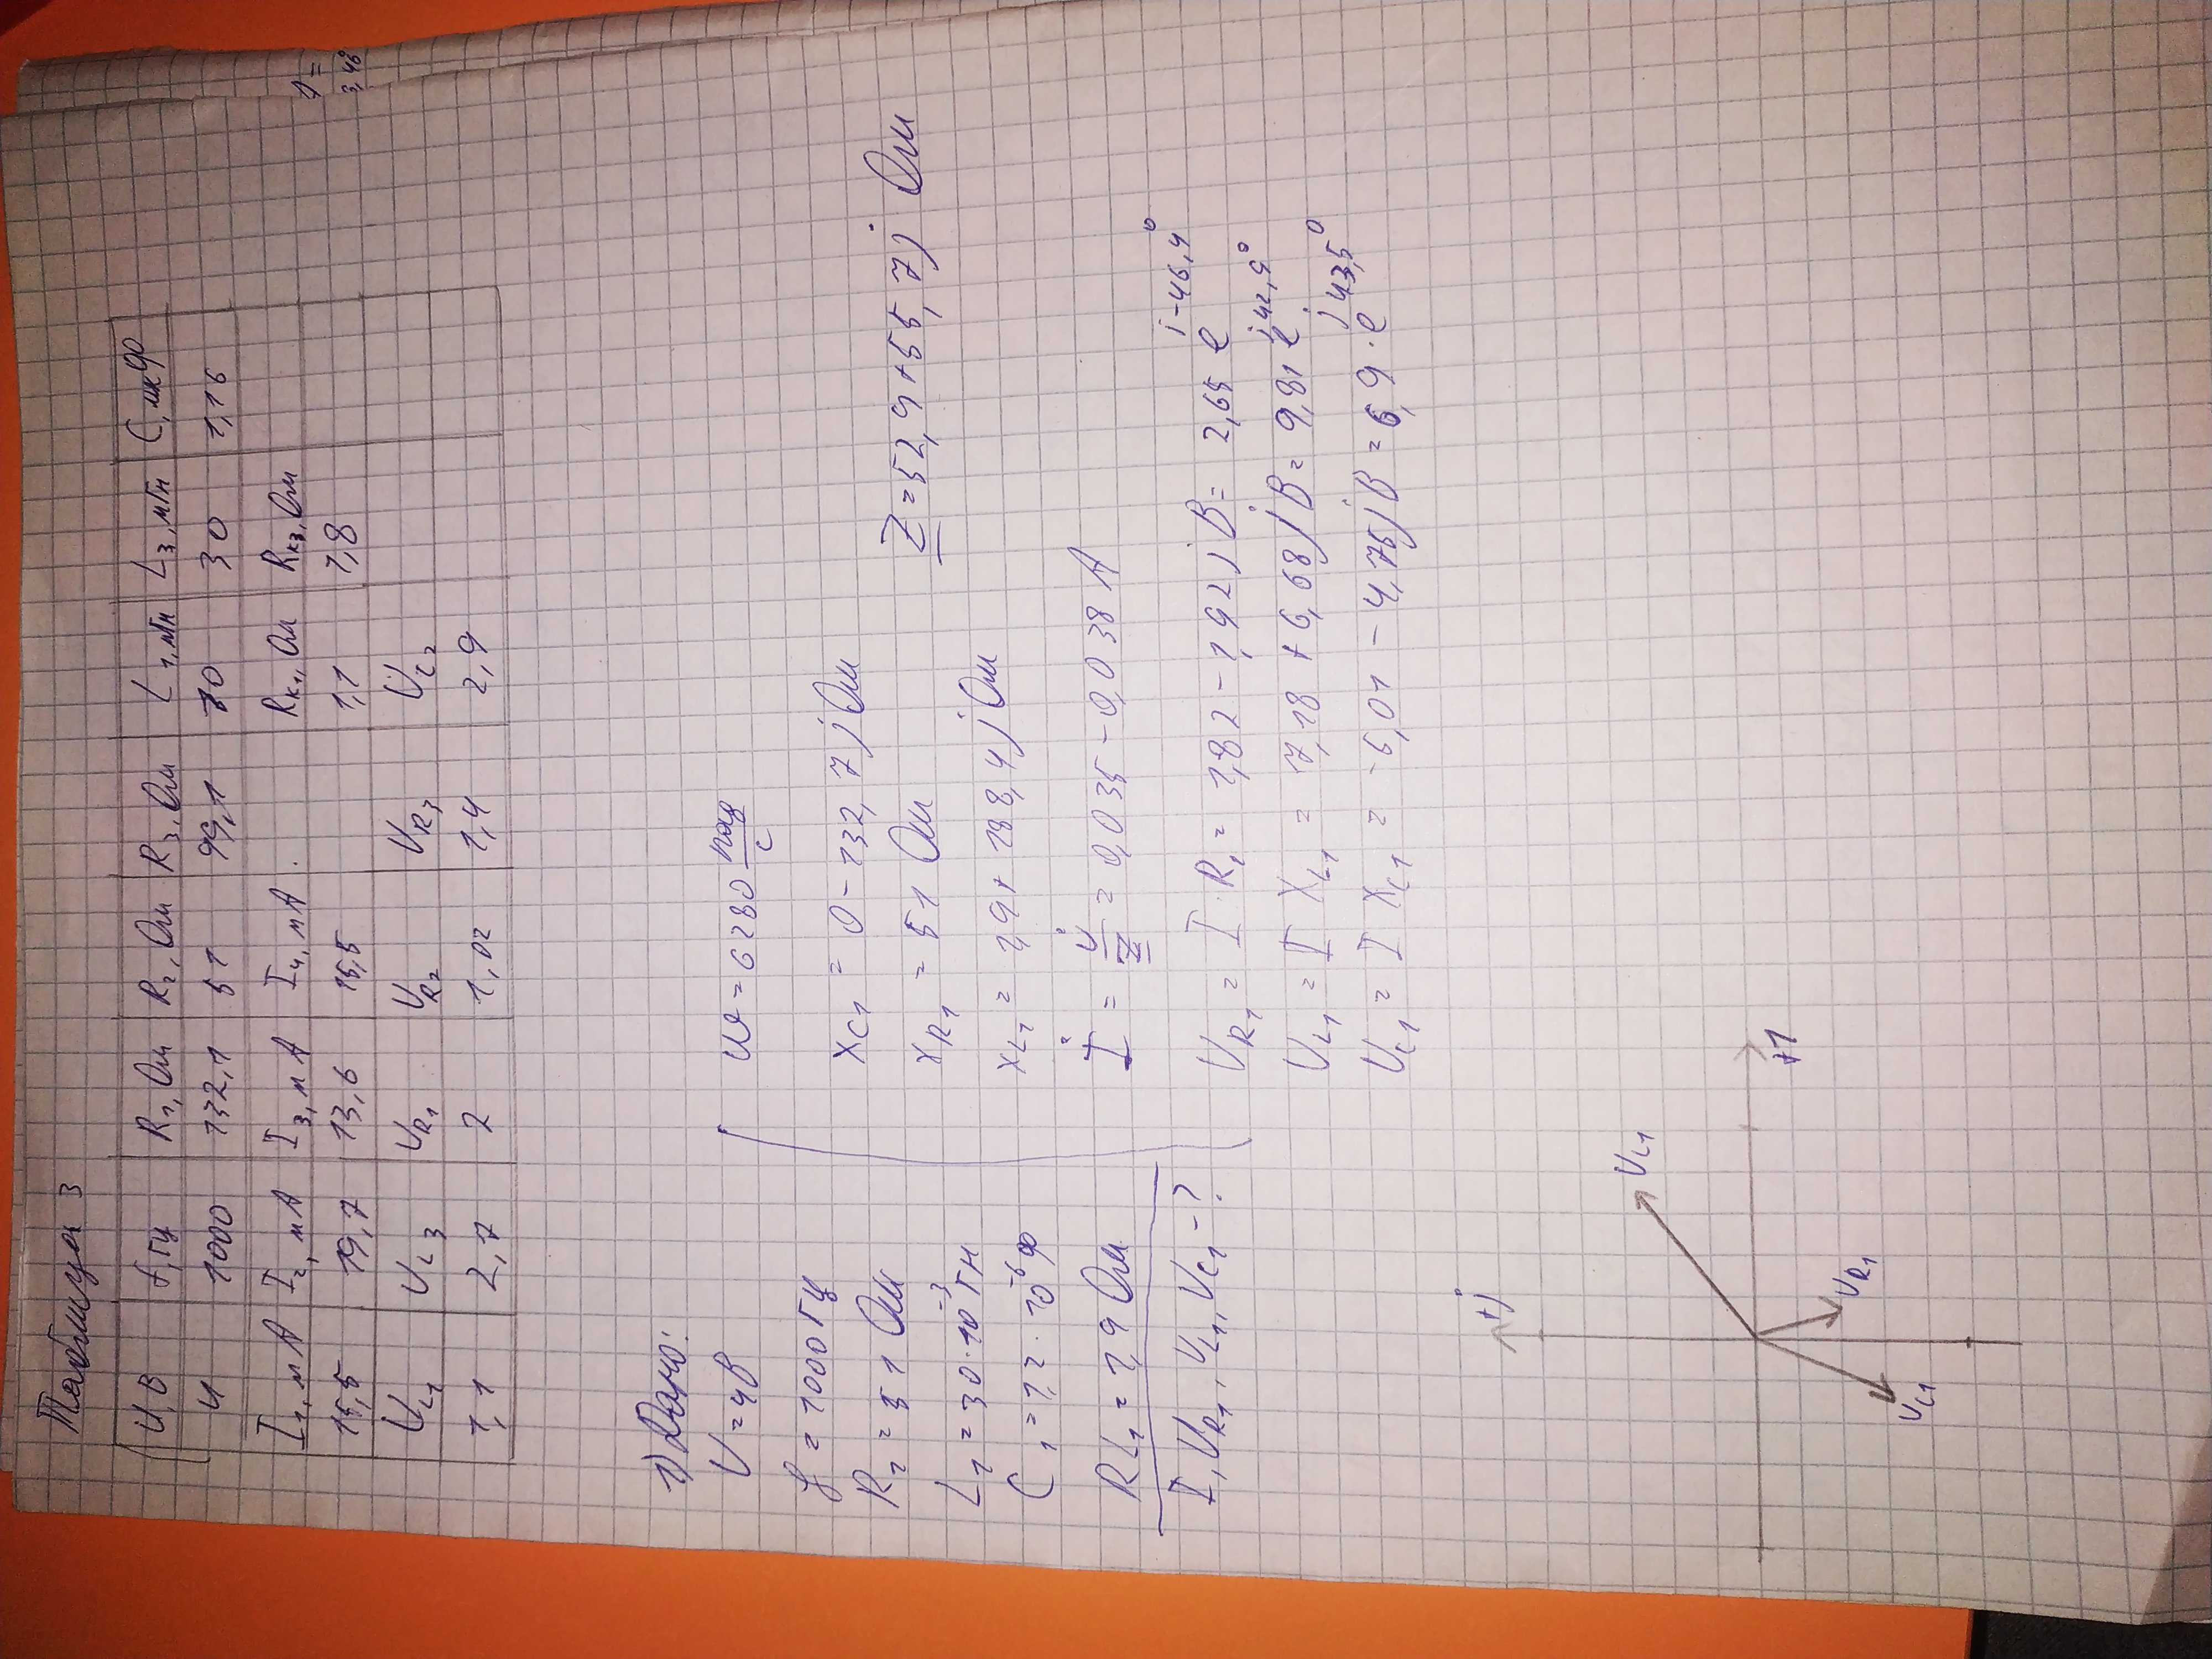 Таблица 3
U,В f,Гц R₁,Ом R₂,Ом R₃,Ом L₁,мГн L₃,мГн C,мкФ
4 1000 132,1 51 99,1 10 30 1,16
I₁,мА I₂,мА I₃,мА I₄,мА Rк₁,Ом Rк₃,Ом
15,5 19,7 13,6 15,5 1,1 1,8
U_L1 U_L3 U_R1 U_R2 U_R3 U_C2
1,1 2,7 2 1,02 1,4 2,9
1) Дано:
U=4В
f=1000Гц
R₁=51 Ом
L₁=30·10⁻³Гн
C₁=1,2·10⁻⁶Ф
RL₁=1,9 Ом
I, U_R1, U_L1, U_C1 -?
ω=6280 рад/с
x_C1 = 0-132,7j Ом
x_R1 = 51 Ом
x_L1 = 1,9+188,4j Ом
Z=52,9+55,7j Ом
İ = U̇/Z = 0,035-0,038 А
U_R1 = I·R₁ = 1,82-1,92j В = 2,65 e^j-46,4°
U_L1 = I X_L1 = 7,18+6,68j В = 9,81 e^j42,9°
U_C1 = I X_C1 = -5,01-4,75j В = 6,9·e^j43,5°
+j
U_L1
+1
U_R1
U_C1